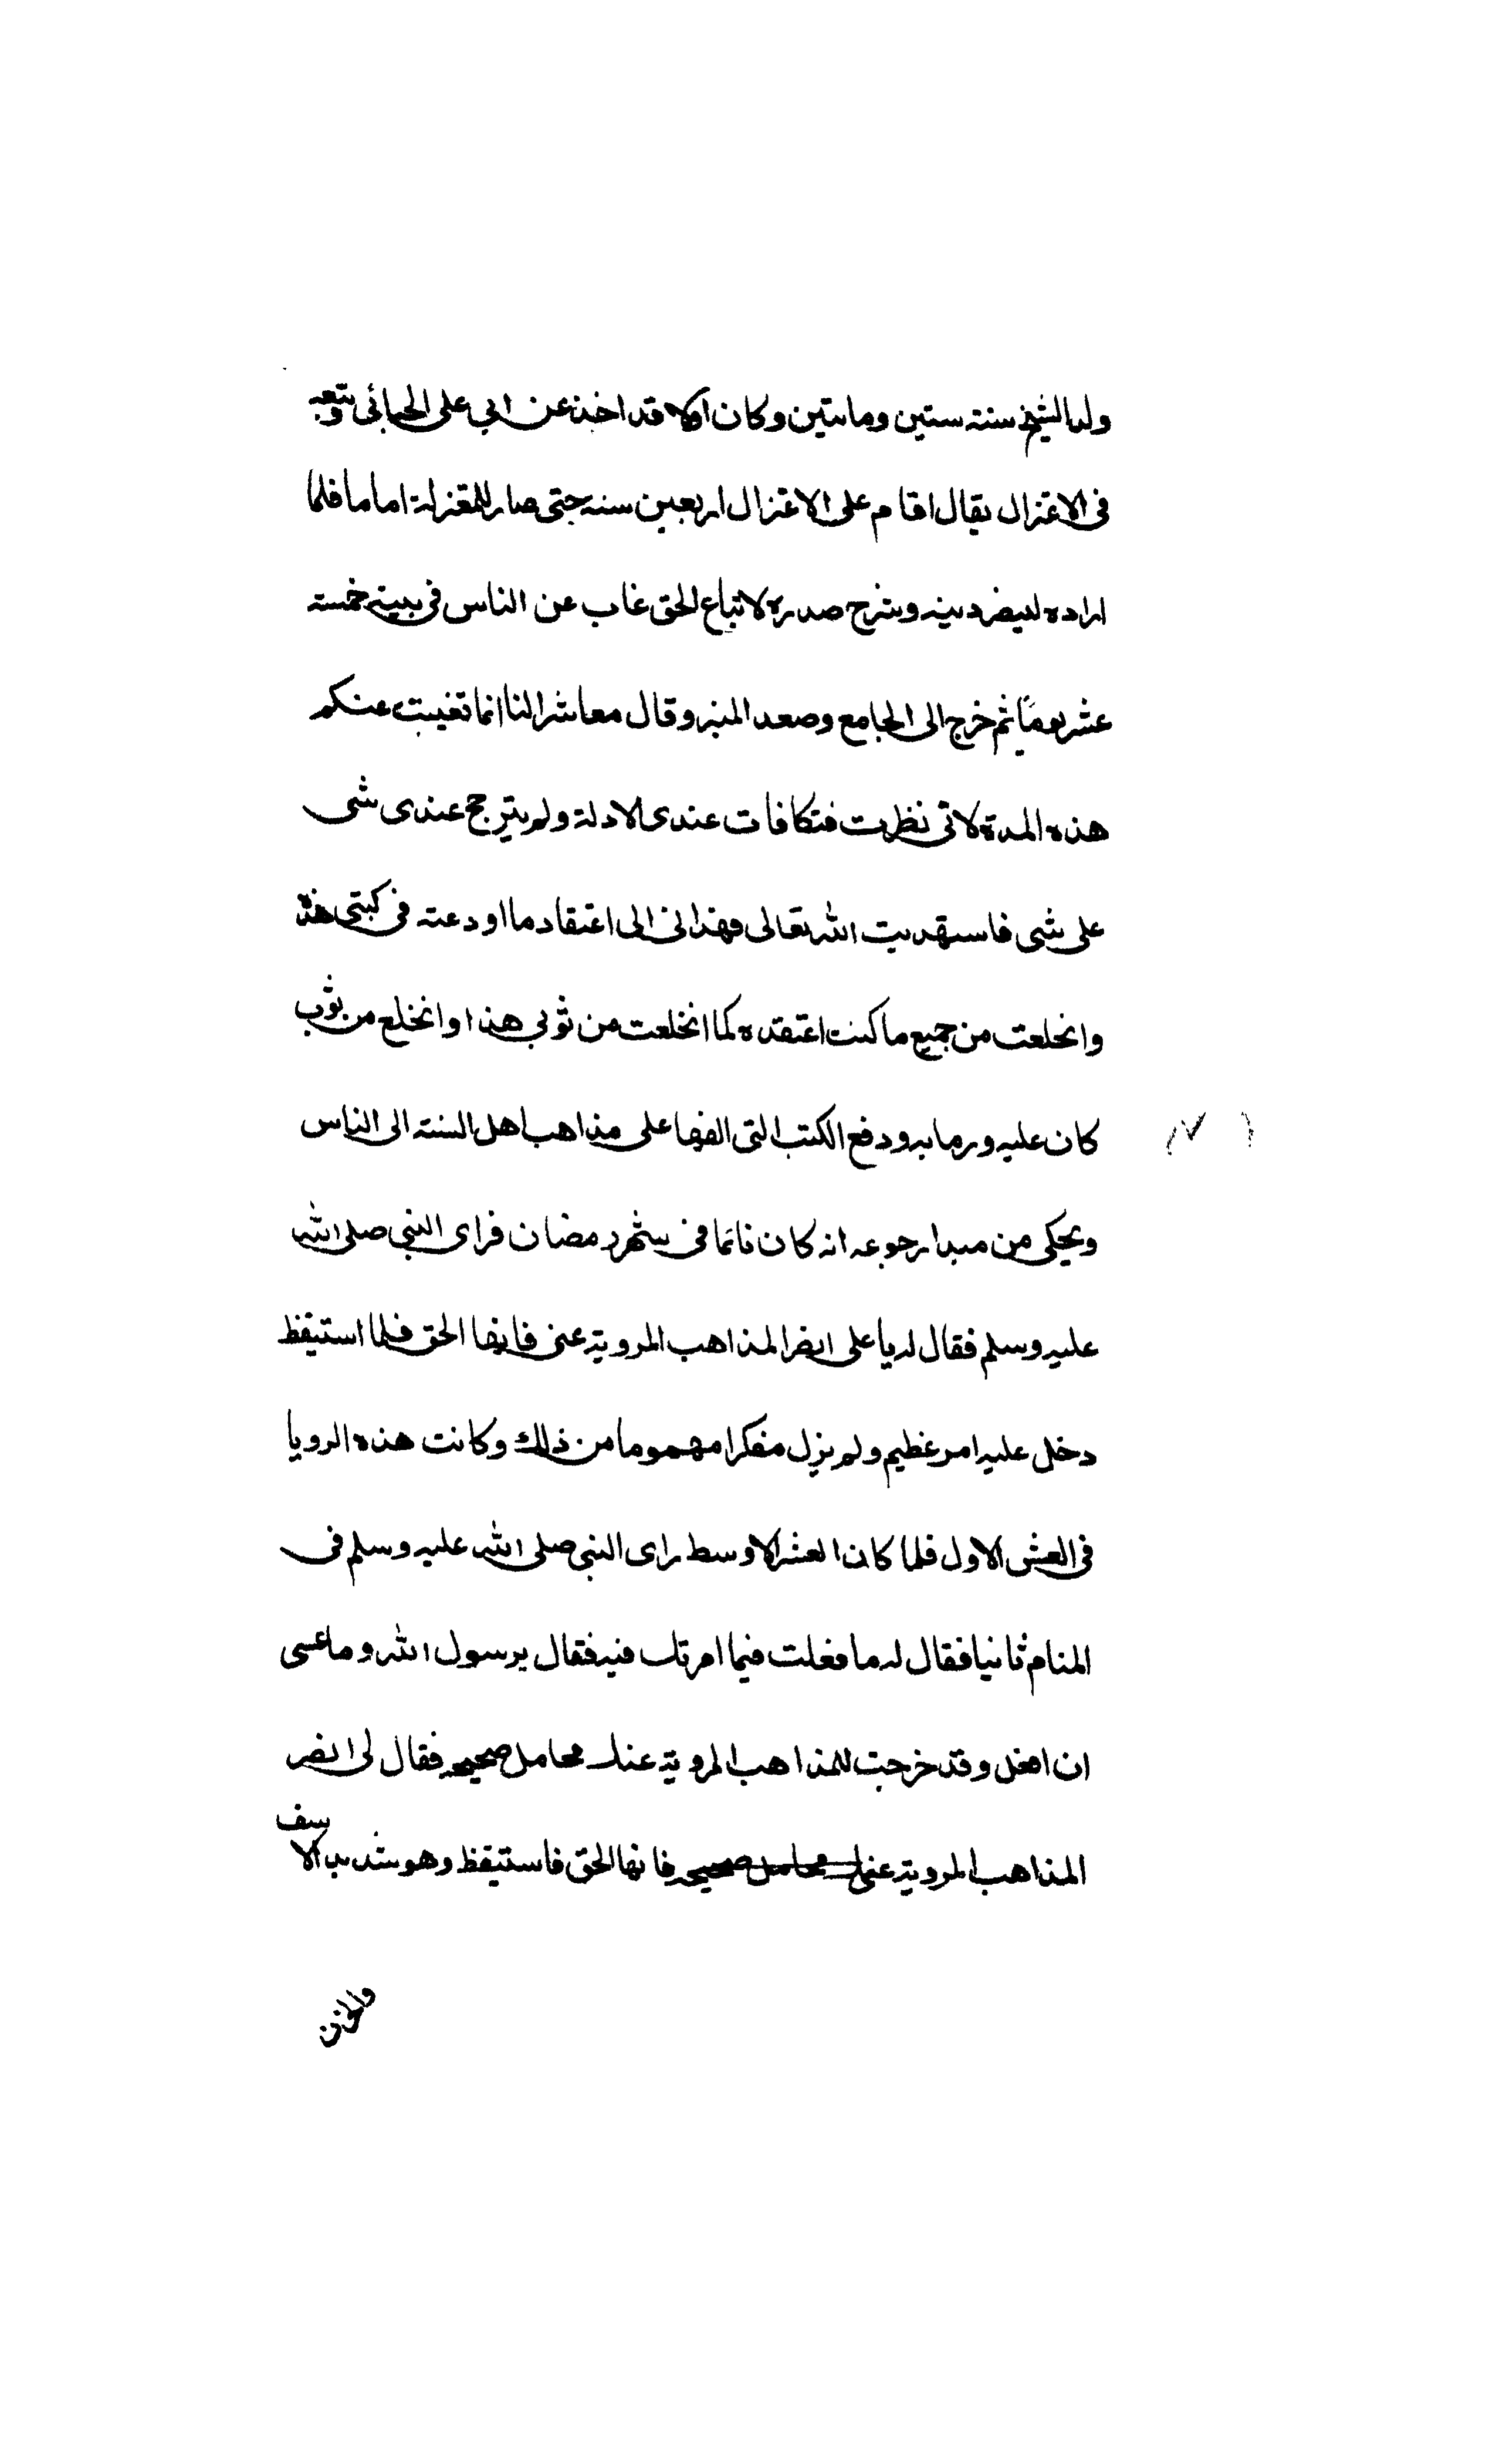 ولد الشيخ سنة ستين وماىتين وكان اولا قد اخذ عن ابي على الجبائي وتبعه
في الاعتزال يقال اقام على الاعتزال اربعين سنة حتى صار للمعتزلة اماما فلما
اراده لنصر دينه وشرح صدره لاتباع الحق غاب عن الناس في بيته خمسة
عشر يومًا ثم خرج الى الجامع وصعد المنبر وقال معاشر النا انما تغيبت عنكم
هذه المدة لانى نظرت فتكافات عندى الادلة ولم يترجح عندى شى
على شى فاستهديت الله تعالى فهدانى الى اعتقاد ما اودعته في كتبى هذه
وانخلعت من جميع ما كنت اعتقده كما انخلعت من ثوبي هذا وانخلع من ثوب
كان عليه ورما به ودفع الكتب التى الفها على مذاهب اهل السنة الى الناس
ويحكى من مبدا رجوعه انه كان نائما في شهر رمضان فراى النبي صلى الله
عليه وسلم فقال له يا على انصر المذاهب المروية عنى فانها الحق فلما استيقظ
دخل عليه امر عظيم ولم يزل مفكرا مهموما من ذلك وكانت هذه الرويا
في العشر الاول فلما كان العشر الاوسط راى النبي صلى الله عليه وسلم في
المنام ثانيا فقال له ما فعلت فيما امرتك فيه فقال يرسول الله وما عسى
ان افعل وقد خرجت للمذاهب المروية عنك محامل صحيحه فقال لى انصر
المذاهب المروية عنى محامل صحيحه فانها الحق فاستيقظ وهو شديد الاسف
والحزن